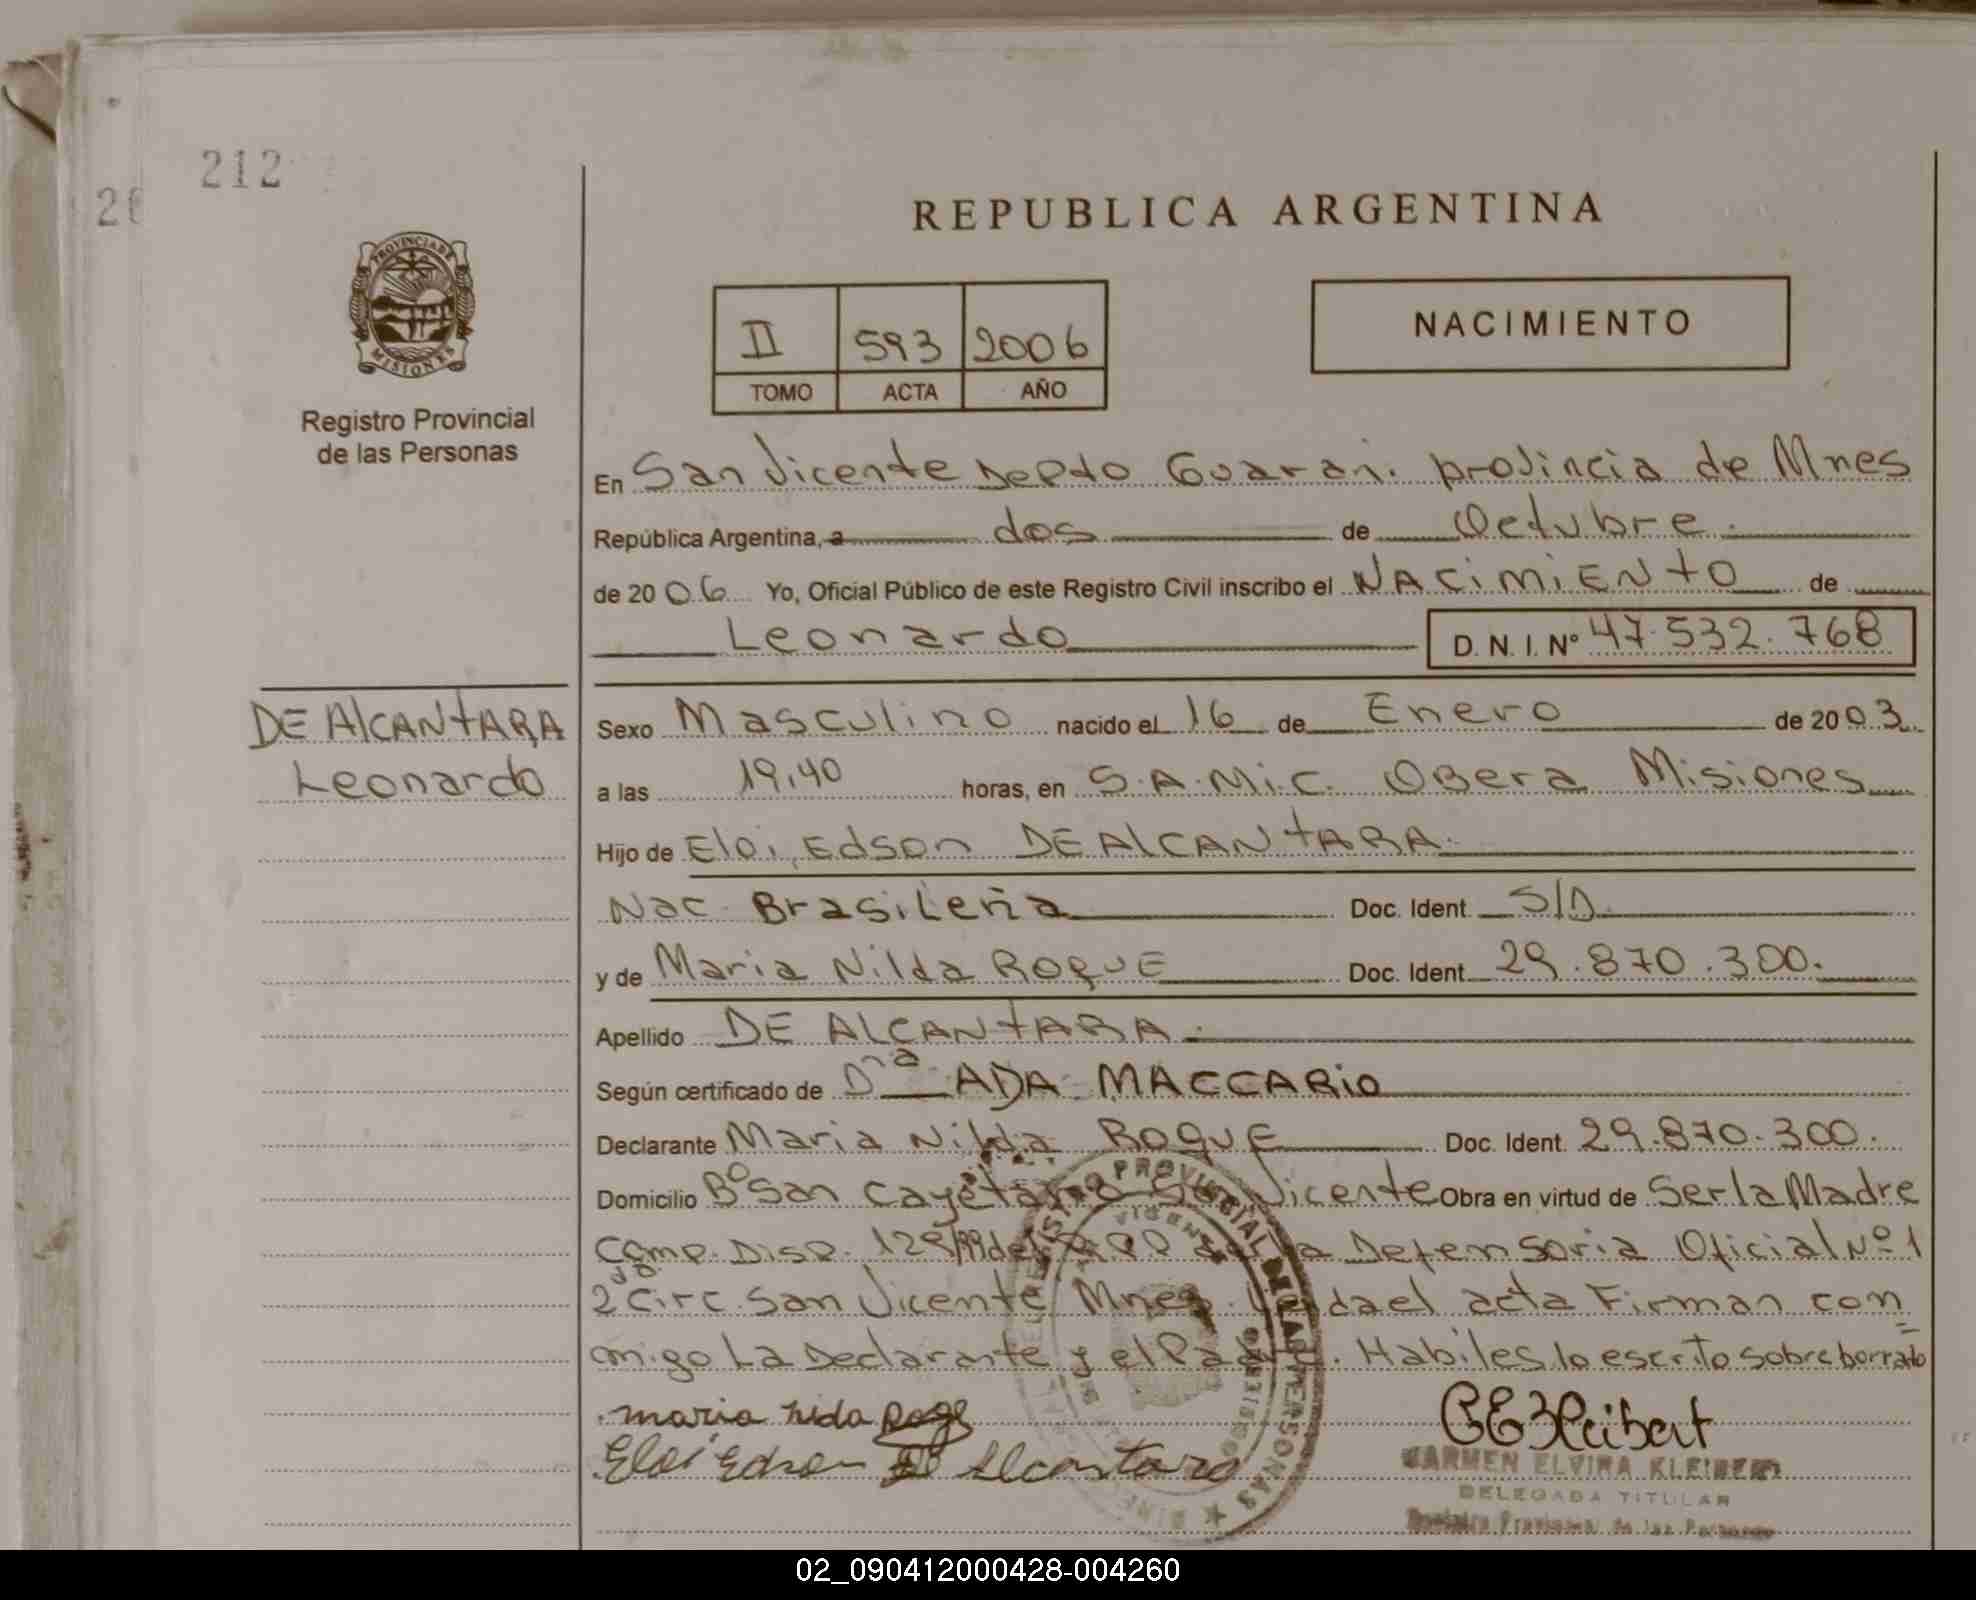 212
2
PROVINCIA DE
MISIONES
Registro Provincial
de las Personas
REPUBLICA ARGENTINA
II 593 2006
TOMO ACTA AÑO
NACIMIENTO
En San Vicente Depto Guarani provincia de Mnes
República Argentina, a dos de Octubre
de 2006 Yo, Oficial Público de este Registro Civil inscribo el NACIMIENTO de
Leonardo D. N. I. Nº 47.532.768
DE ALCANTARA
Leonardo
Sexo Masculino nacido el 16 de Enero de 2003
a las 19,40 horas, en S.A.Mi.C. Obera Misiones
Hijo de Eloi Edson DE ALCANTARA
Nac. Brasileña Doc. Ident. S/D
y de Maria Nilda ROQUE Doc. Ident. 29.870.300.
Apellido DE ALCANTARA.
Según certificado de Dra ADA MACCARIO
Declarante Maria Nilda ROQUE Doc. Ident. 29.870.300.
Domicilio Bº San Cayetano San Vicente Obra en virtud de Ser la Madre
Comp. Disp. 129/99 de la Defensoria Oficial Nº 1
2da Circ. San Vicente Mnes. Leida el acta Firman con
migo La Declarante y el Padre. Habiles lo escrito sobre borrado
maria nida
Eloi Edson de Alcantara
CARMEN ELVIRA KLEIBERT
DELEGADA TITULAR
Registro Provincial de las Personas
REGISTRO PROVINCIAL DE LAS PERSONAS
02_090412000428-004260